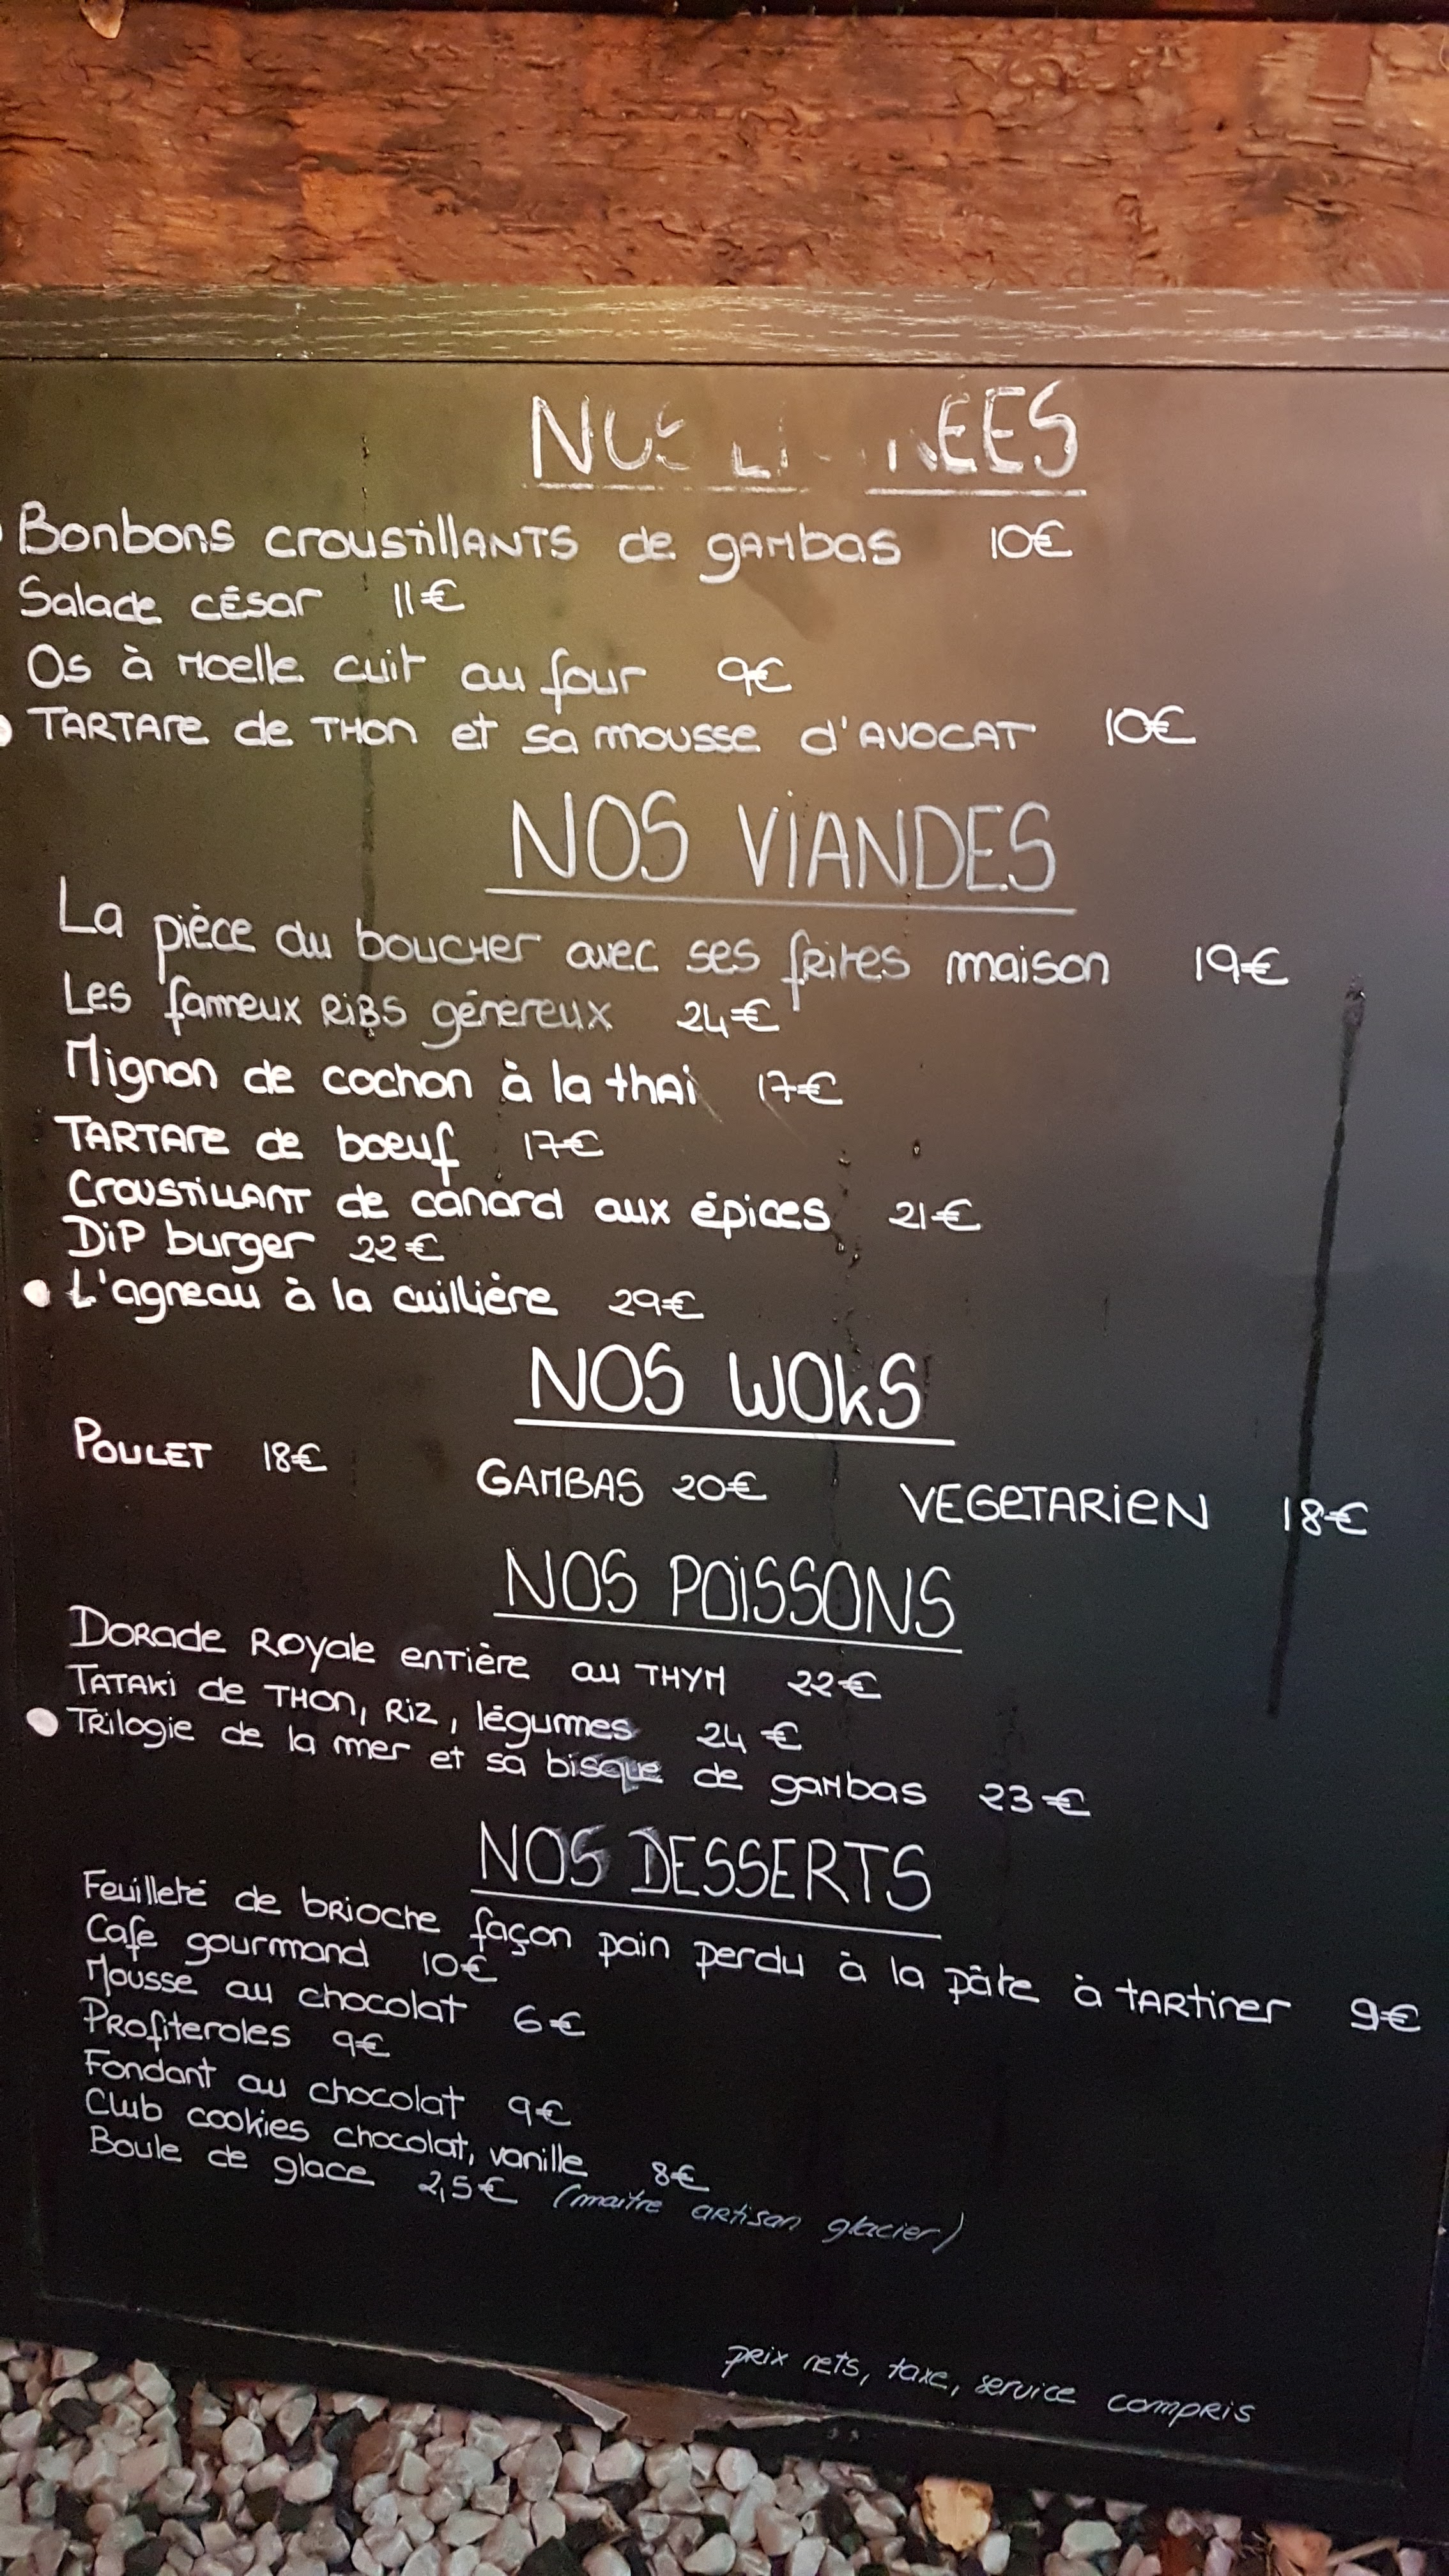 NOS ENTREES
Bonbons croustillants de gambas 10€
Salade césar 11€
Os à moelle cuit au four 9€
Tartare de thon et sa mousse d'avocat 10€
NOS VIANDES
La pièce du boucher avec ses frites maison 19€
Les fameux ribs généreux 24€
Mignon de cochon à la thai 17€
Tartare de boeuf 17€
Croustillant de canard aux épices 21€
Dip burger 22€
L'agneau à la cuillière 29€
NOS WOKS
POULET 18€ GAMBAS 20€ VEGETARIEN 18€
NOS POISSONS
Dorade Royale entière au thym 22€
Tataki de thon, riz, légumes 24€
Trilogie de la mer et sa bisque de gambas 23€
NOS DESSERTS
Feuilleté de brioche façon pain perdu à la pâte à tartiner 9€
Cafe gourmand 10€
Mousse au chocolat 6€
Profiteroles 9€
Fondant au chocolat 9€
Club cookies chocolat, vanille 8€
Boule de glace 2,5€ (maitre artisan glacier)
prix nets, taxe, service compris